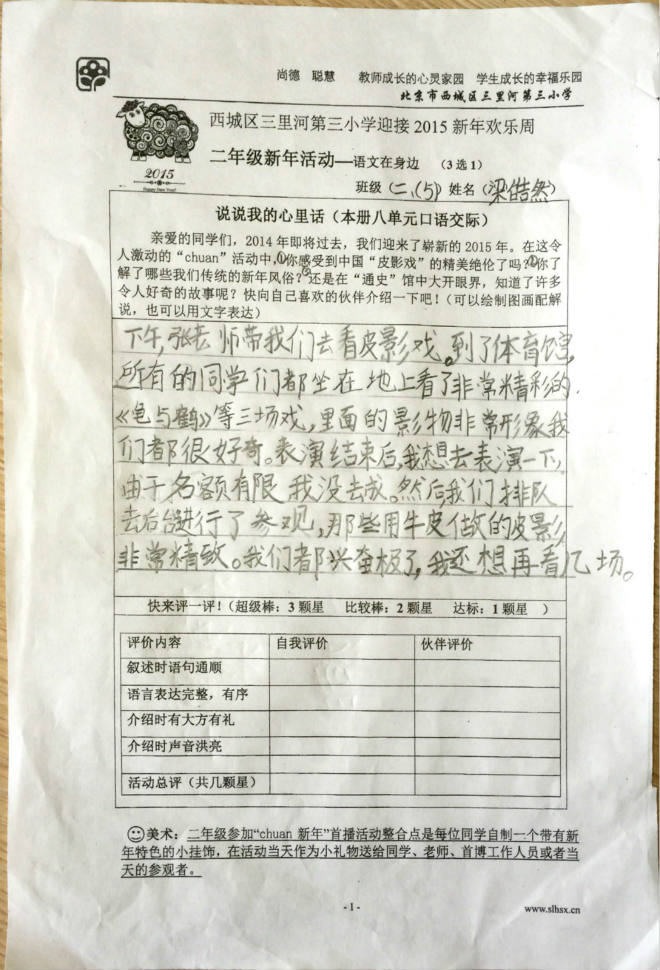 尚德 聪慧 教师成长的心灵家园 学生成长的幸福乐园
北京市西城区三里河第三小学
西城区三里河第三小学迎接2015新年欢乐周
二年级新年活动—语文在身边 （3选1）
2015
Happy New Year!
班级（二、(5)）姓名（梁皓然）
说说我的心里话（本册八单元口语交际）
亲爱的同学们，2014年即将过去，我们迎来了崭新的2015年。在这令
人激动的“chuan”活动中，①你感受到中国“皮影戏”的精美绝伦了吗？②你了
解了哪些我们传统的新年风俗？③还是在“通史”馆中大开眼界，知道了许多
令人好奇的故事呢？快向自己喜欢的伙伴介绍一下吧！（可以绘制图画配解
说，也可以用文字表达）
下午，张老师带我们去看皮影戏。到了体育馆，
所有的同学们都坐在地上看了非常精彩的
《龟与鹤》等三场戏，里面的影物非常形象我
们都很好奇。表演结束后，我想去表演一下，
由于名额有限我没去成。然后我们排队
去后台进行了参观，那些用牛皮做的皮影，
非常精致。我们都兴奋极了，我还想再看几场。
快来评一评！（超级棒：3颗星 比较棒：2颗星 达标：1颗星 ）
评价内容 自我评价 伙伴评价
叙述时语句通顺
语言表达完整，有序
介绍时有大方有礼
介绍时声音洪亮
活动总评（共几颗星）
美术：二年级参加“chuan新年”首播活动整合点是每位同学自制一个带有新
年特色的小挂饰，在活动当天作为小礼物送给同学、老师、首博工作人员或者当
天的参观者。
- 1 -
www.slhsx.cn